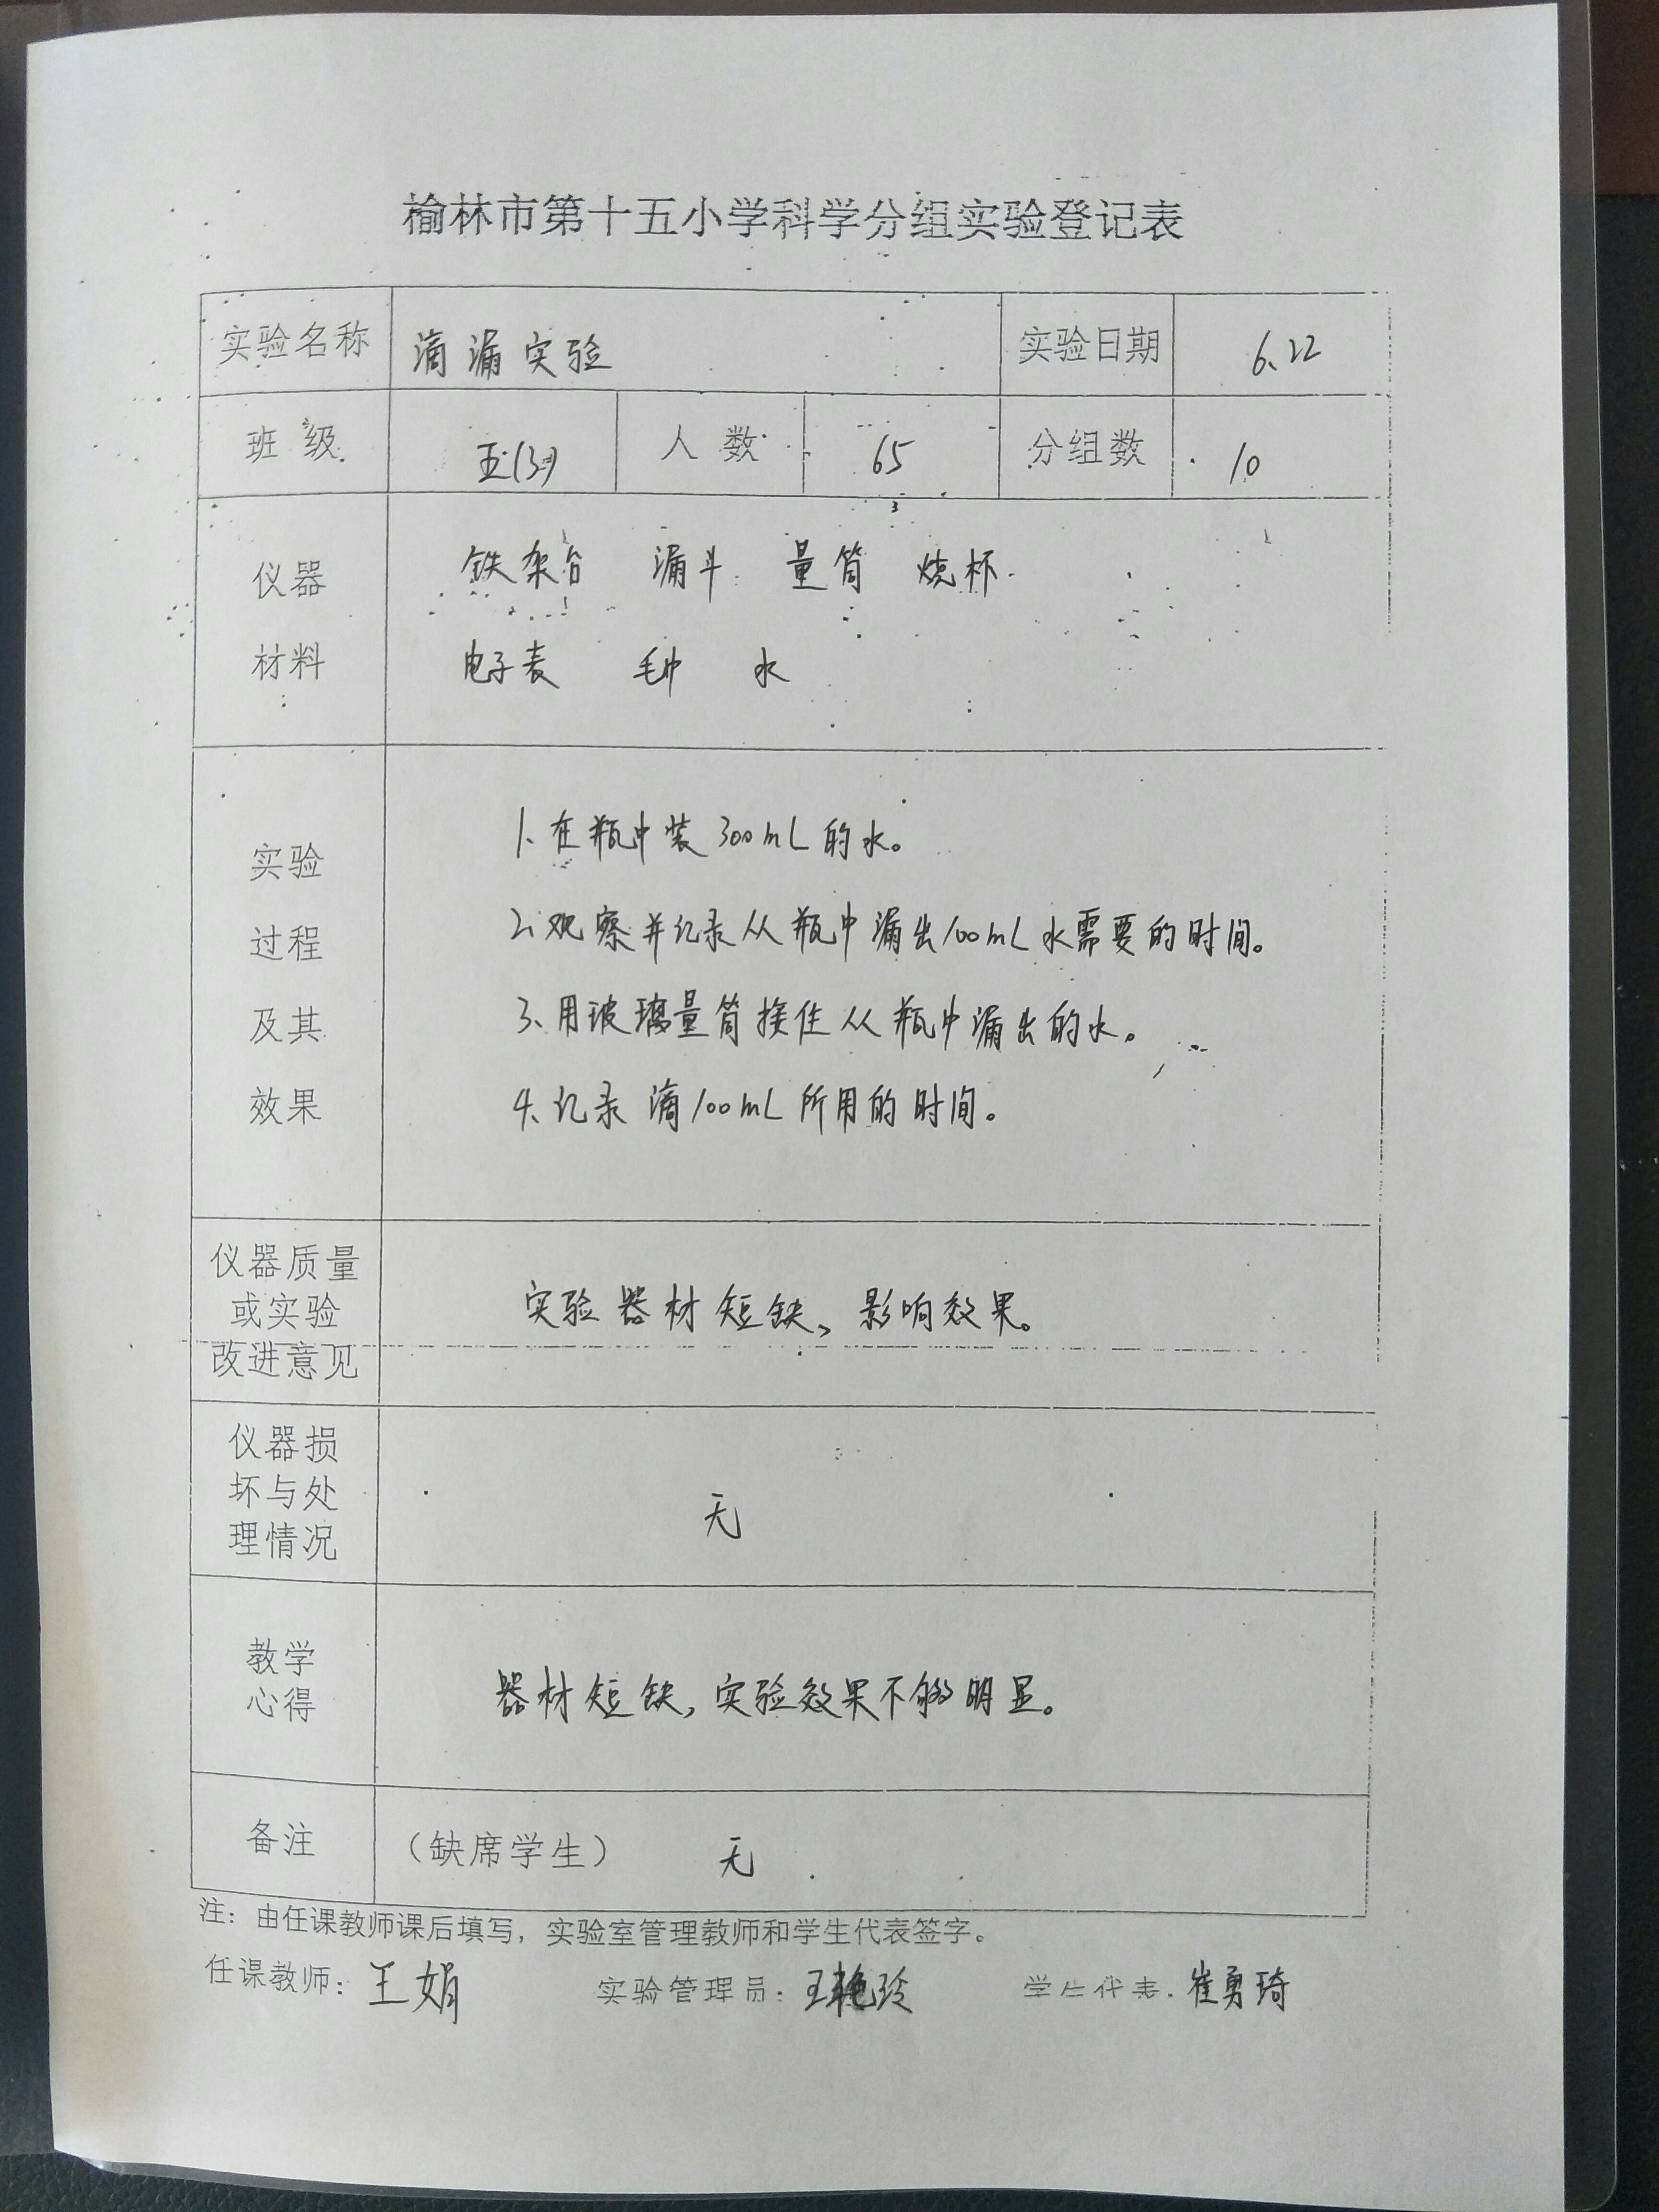 榆林市第十五小学科学分组实验登记表
实验名称 滴漏实验 实验日期 6.22
班级 五(3) 人数 65 分组数 10
仪器 铁架台 漏斗 量筒 烧杯
材料 电子表 毛巾 水
1、在瓶中装300mL的水。
实验
2、观察并记录从瓶中漏出100mL水需要的时间。
过程
3、用玻璃量筒接住从瓶中漏出的水。
及其
4、记录滴100mL所用的时间。
效果
仪器质量
或实验 实验器材短缺，影响效果。
改进意见
仪器损
坏与处 无
理情况
教学
心得 器材短缺，实验效果不够明显。
备注 （缺席学生） 无
注：由任课教师课后填写，实验室管理教师和学生代表签字。
任课教师：王娟 实验管理员：王艳玲 学生代表：崔勇琦